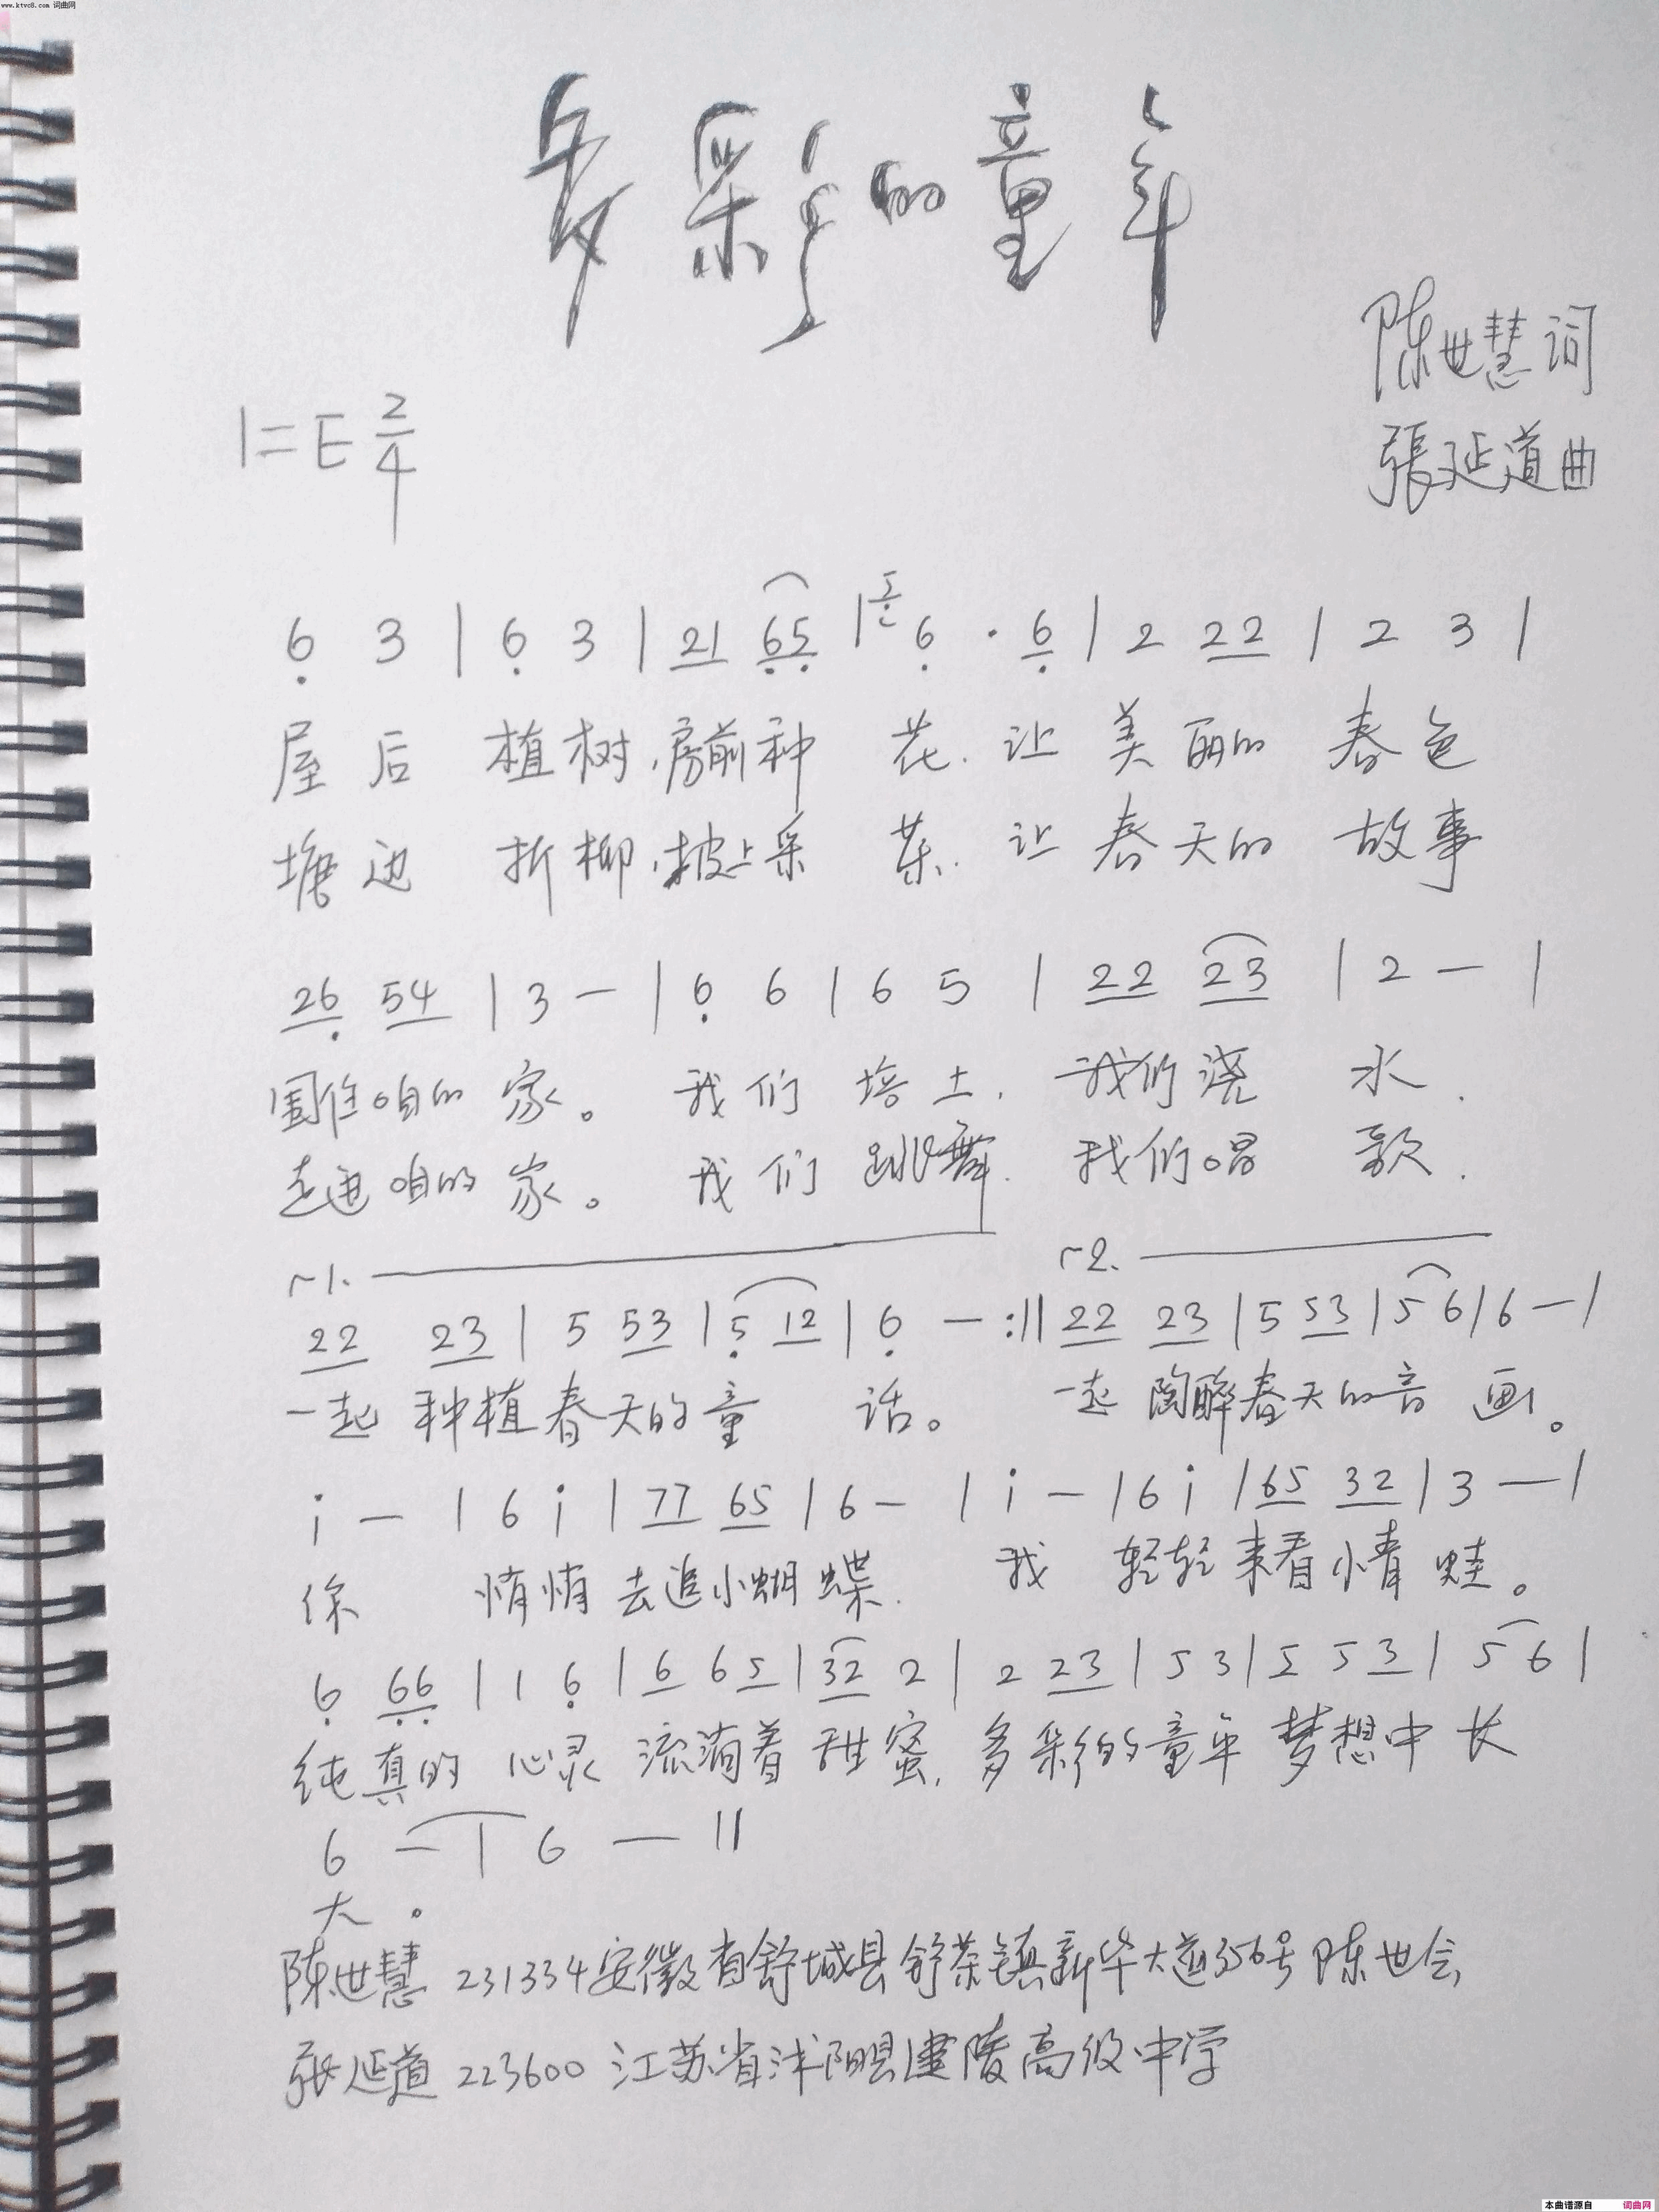 www.ktvc8.com 词曲网
多彩的童年
陈世慧词
1=E 2/4
張延道曲
6 3 | 6 3 | 21 65 | 5 6 · 6 | 2 22 | 2 3 |
屋后 植树,房前种 花.让 美丽的 春色
塘边 折柳,坡上采 茶.让 春天的 故事
26 54 | 3 — | 6 6 | 6 5 | 22 23 | 2 — |
围住咱的 家。 我们 培土. 我们浇 水.
走进咱的 家。 我们 跳舞. 我们唱 歌.
1. 2.
22 23 | 5 53 | 5 12 | 6 — :|| 22 23 | 5 53 | 5 6 | 6 — |
一起 种植春天的童 话。 一起 陶醉春天的音 画。
i — | 6 i | 77 65 | 6 — | i — | 6 i | 65 32 | 3 — |
你 悄悄 去追小蝴 蝶. 我 轻轻 来看小青 蛙。
6 66 | 1 6 | 6 6 5 | 32 2 | 2 23 | 5 3 | 5 5 3 | 5 6 |
纯真的 心灵 流淌着 甜蜜,多彩的童年 梦想中 长
6 — | 6 — ||
大。
陈世慧 231334安徽省舒城县舒茶镇新华大道356号 陈世会
張延道 223600 江苏省沭阳县建陵高级中学
本曲谱源自 词曲网